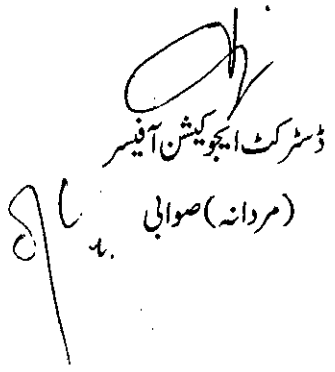 ڈسٹرکٹ ایجوکیشن آفیسر
(مردانہ) صوابی